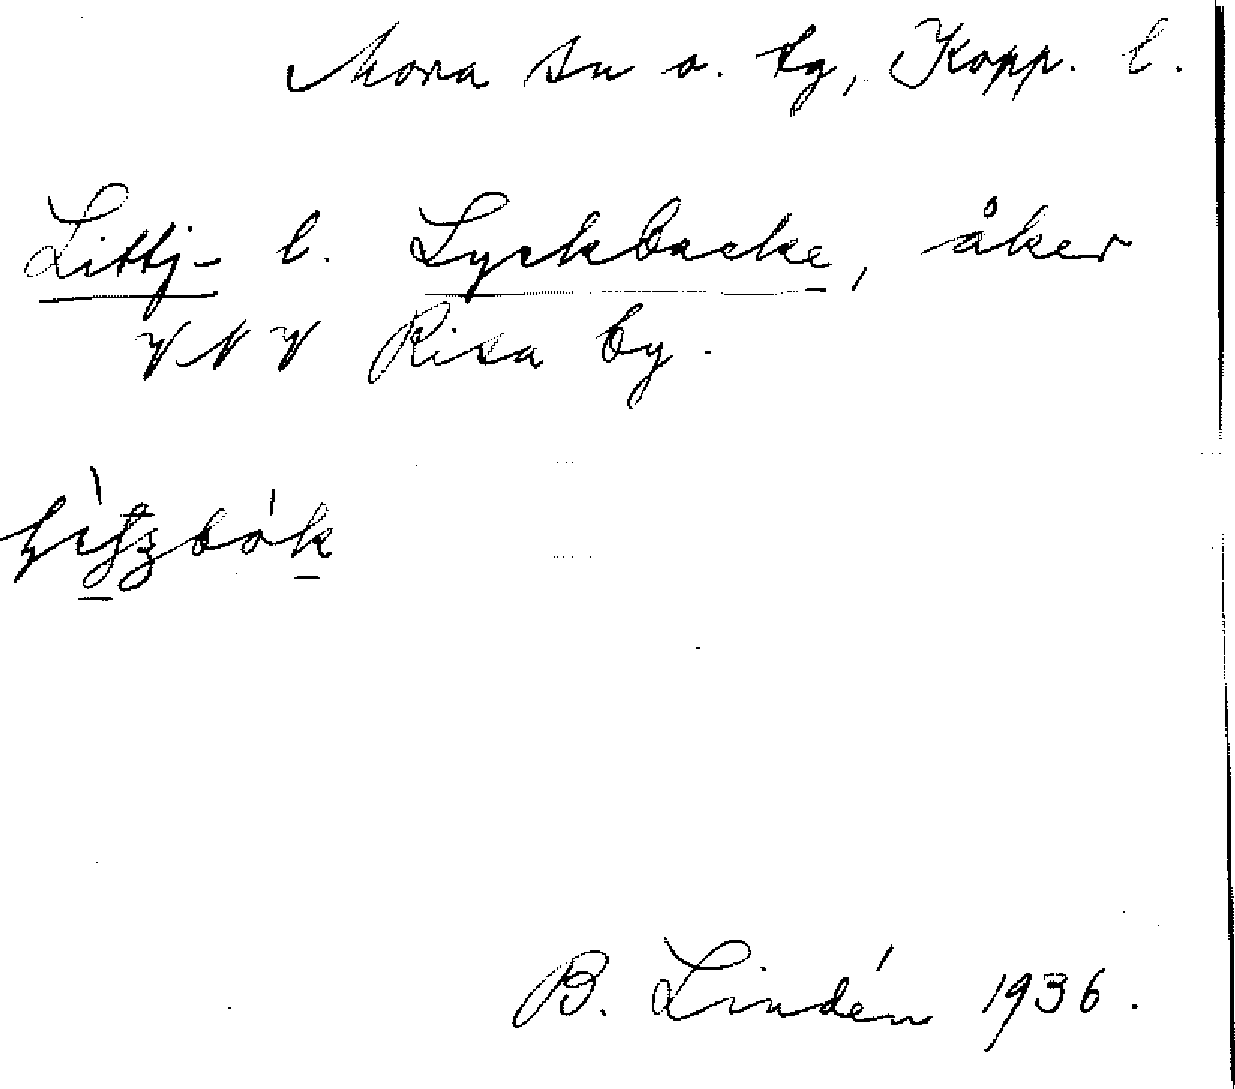 Mora sn o. tg, Kopp. l.
Littj- l. Lyckbacke, åker
VNV Risa by.
B. Lindén 1936.